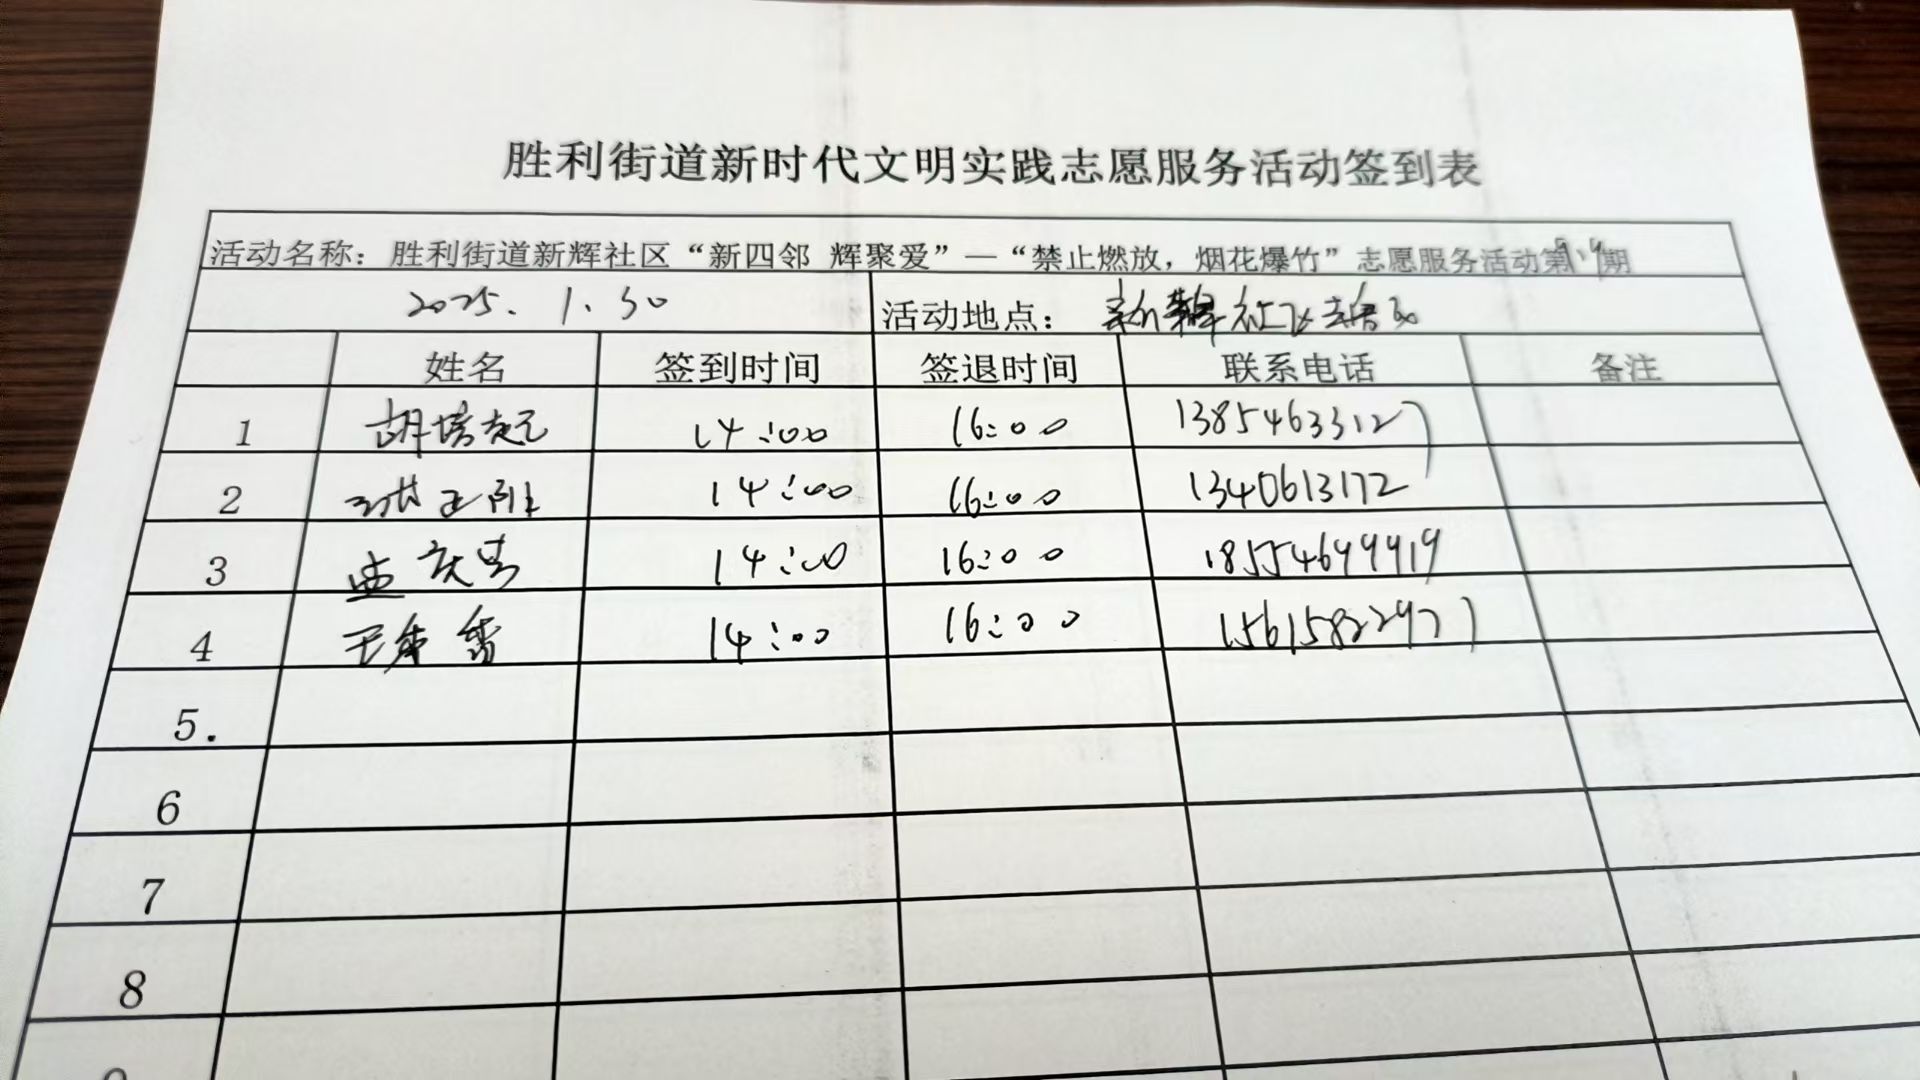 胜利街道新时代文明实践志愿服务活动签到表
活动名称：胜利街道新辉社区“新四邻 辉聚爱”—“禁止燃放，烟花爆竹”志愿服务活动第 期
2025.1.30 活动地点：新辉社区
姓名 签到时间 签退时间 联系电话 备注
1 胡培起 14:00 16:00 13854633127
2 14:00 16:00 1340613172
3 孟庆 14:00 16:00 18554699919
4 王 14:00 16:00 15615822977
5.
6
7
8